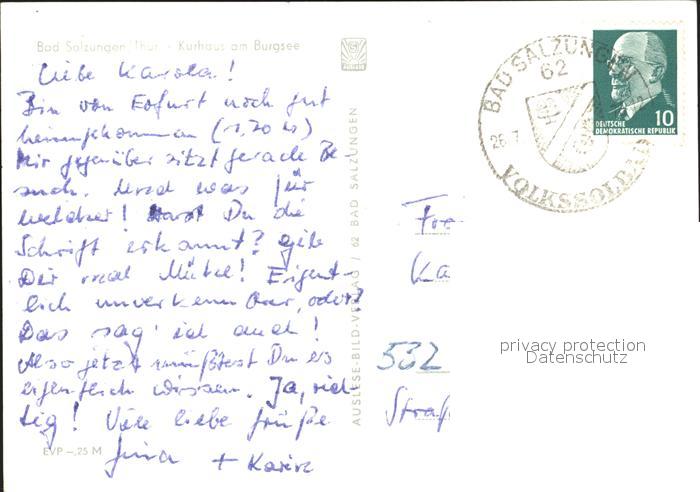 Bad Salzungen/Thür. · Kurhaus am Burgsee
Liebe Karola!
Bin von Erfurt noch gut
heimgekommen (1,20 M)
Mir gegenüber sitzt gerade Be-
such. Und was für
welcher! Hast Du die
Schrift erkannt? Gib
Dir mal Mühe! Eigent-
lich unverkennbar, oder?
Das sag' ich auch!
Also jetzt müßtest Du es
eigentlich wissen. Ja, rich-
tig! Viele liebe Grüße
+ Karin
EVP -,25 M
AUSLESE-BILD-VERLAG / 62 BAD SALZUNGEN
BAD SALZUNGEN
62
26.7
VOLKSSOLBAD
DEUTSCHE
DEMOKRATISCHE REPUBLIK
10
Ka
532
Straß
privacy protection
Datenschutz